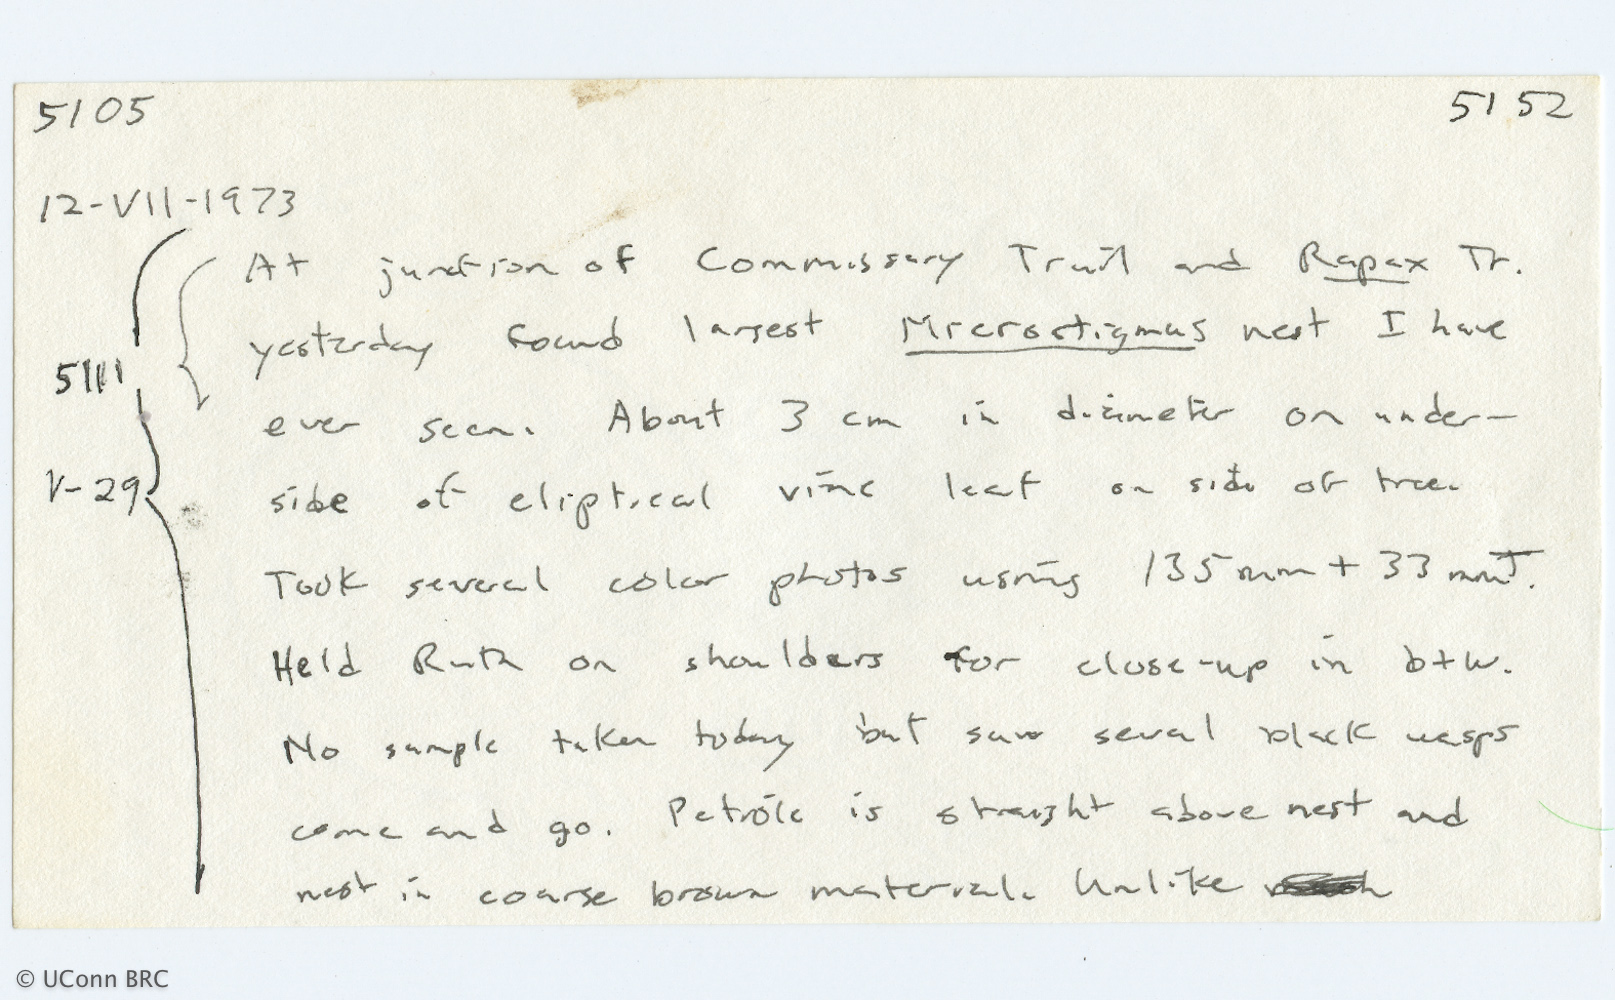 5105 5152
12-VII-1973
At junction of Commissary Trail and Rapax Tr.
yesterday found largest Microstigmus nest I have
5111
ever seen. About 3 cm in diameter on under-
V-29
side of eliptical vine leaf on side of tree.
Took several color photos using 135mm + 33 mm
Held Ruth on shoulders for close-up in b+w.
No sample taken today but saw seval black wasps
come and go. Petiole is straight above nest and
nest in coarse brown material. Unlike
© UConn BRC